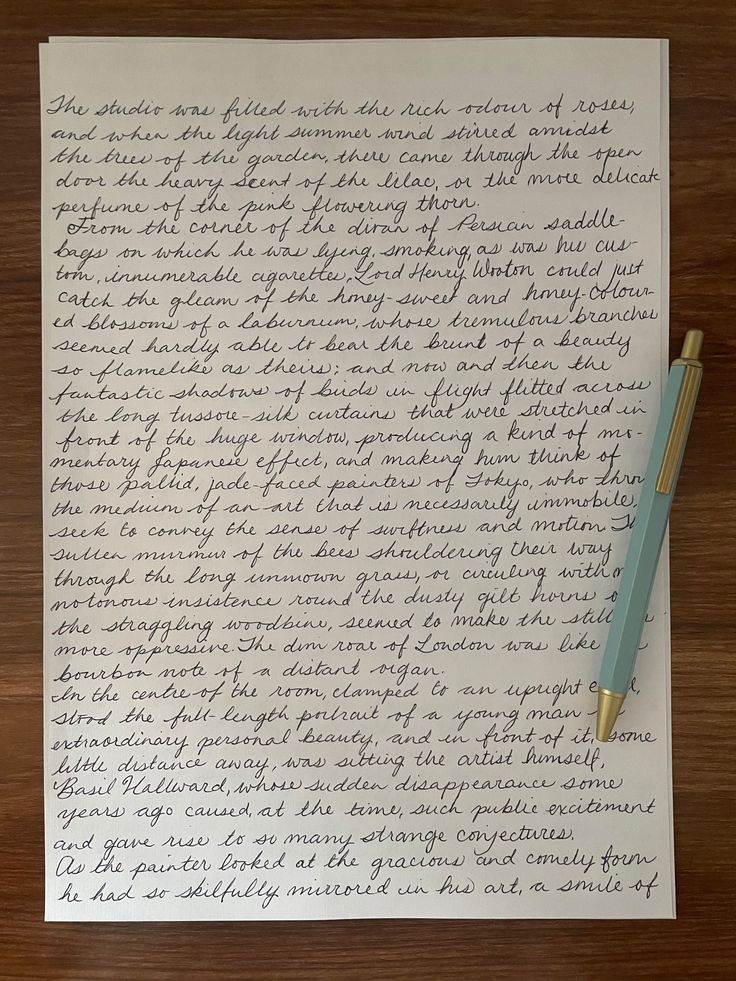 The studio was filled with the rich odour of roses,
and when the light summer wind stirred amidst
the trees of the garden, there came through the open
door the heavy scent of the lilac, or the more delicate
perfume of the pink flowering thorn.
From the corner of the divan of Persian saddle-
bags on which he was lying, smoking, as was his cus-
tom, innumerable cigarettes, Lord Henry Wooton could just
catch the gleam of the honey-sweet and honey-colour-
ed blossoms of a laburnum, whose tremulous branches
seemed hardly able to bear the brunt of a beauty
so flamelike as theirs; and now and then the
fantastic shadows of birds in flight flitted across
the long tussore-silk curtains that were stretched in
front of the huge window, producing a kind of mo-
mentary Japanese effect, and making him think of
those pallid, jade-faced painters of Tokyo, who throu
the medium of an art that is necessarily immobile,
seek to convey the sense of swiftness and motion. Th
sullen murmur of the bees shouldering their way
through the long unmown grass, or circling with m
notonous insistence round the dusty gilt horns o
the straggling woodbine, seemed to make the still
more oppressive. The dim roar of London was like
bourbon note of a distant organ.
In the centre of the room, clamped to an upright
stood the full-length portrait of a young man
extraordinary personal beauty, and in front of it, some
little distance away, was sitting the artist himself,
Basil Hallward, whose sudden disappearance some
years ago caused, at the time, such public excitement
and gave rise to so many strange conjectures.
As the painter looked at the gracious and comely form
he had so skilfully mirrored in his art, a smile of